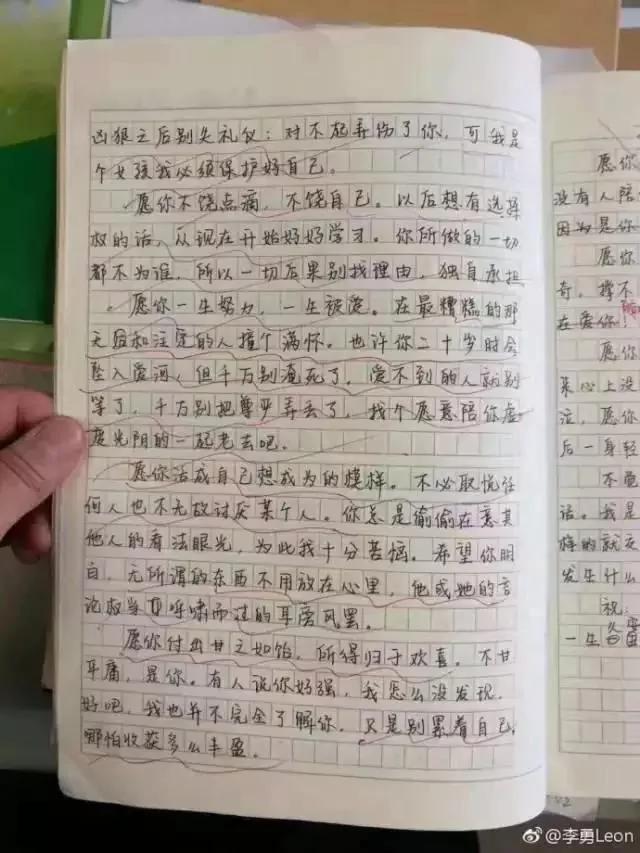 凶狠之后别失礼仪：对不起弄伤了你，可我是
个女孩我必须保护好自己。
愿你不饶点滴，不饶自己。以后想有选择
权的话，从现在开始好好学习。你所做的一切
都不为谁，所以一切后果别找理由，独自承担
愿你一生努力，一生被爱。在最糟糕的那
天窃和注定的人撞个满怀。也许你二十岁时会
坠入爱河，但千万别淹死了，爱不到的人就别
等了，千万别把尊严弄丢了，找个愿意陪你虚
度光阴的一起老去吧。
愿你活成自己想成为的模样。不必取悦任
何人也不无故讨厌某个人。你总是偷偷在意其
他人的看法眼光，为此我十分苦恼。希望你明
白，无所谓的东西不用放在心里，他或她的言
论权当呼啸而过的耳旁风罢。
愿你付出甘之如饴，所得归于欢喜。不甘
平庸，是你。有人说你好强，我怎么没发现，
好吧，我也并不完全了解你，只是别累着自己，
哪怕收获多么丰盈。
愿你
没有人陪
因为是你
愿你
奇，撑不
在爱你！
愿你
来心上没
泣，愿你
后一身轻
不
话。我是
梅的就交
发生什么
祝：
一生
@李勇Leon